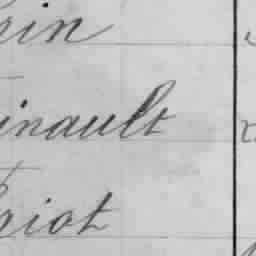 rin
inault
riot